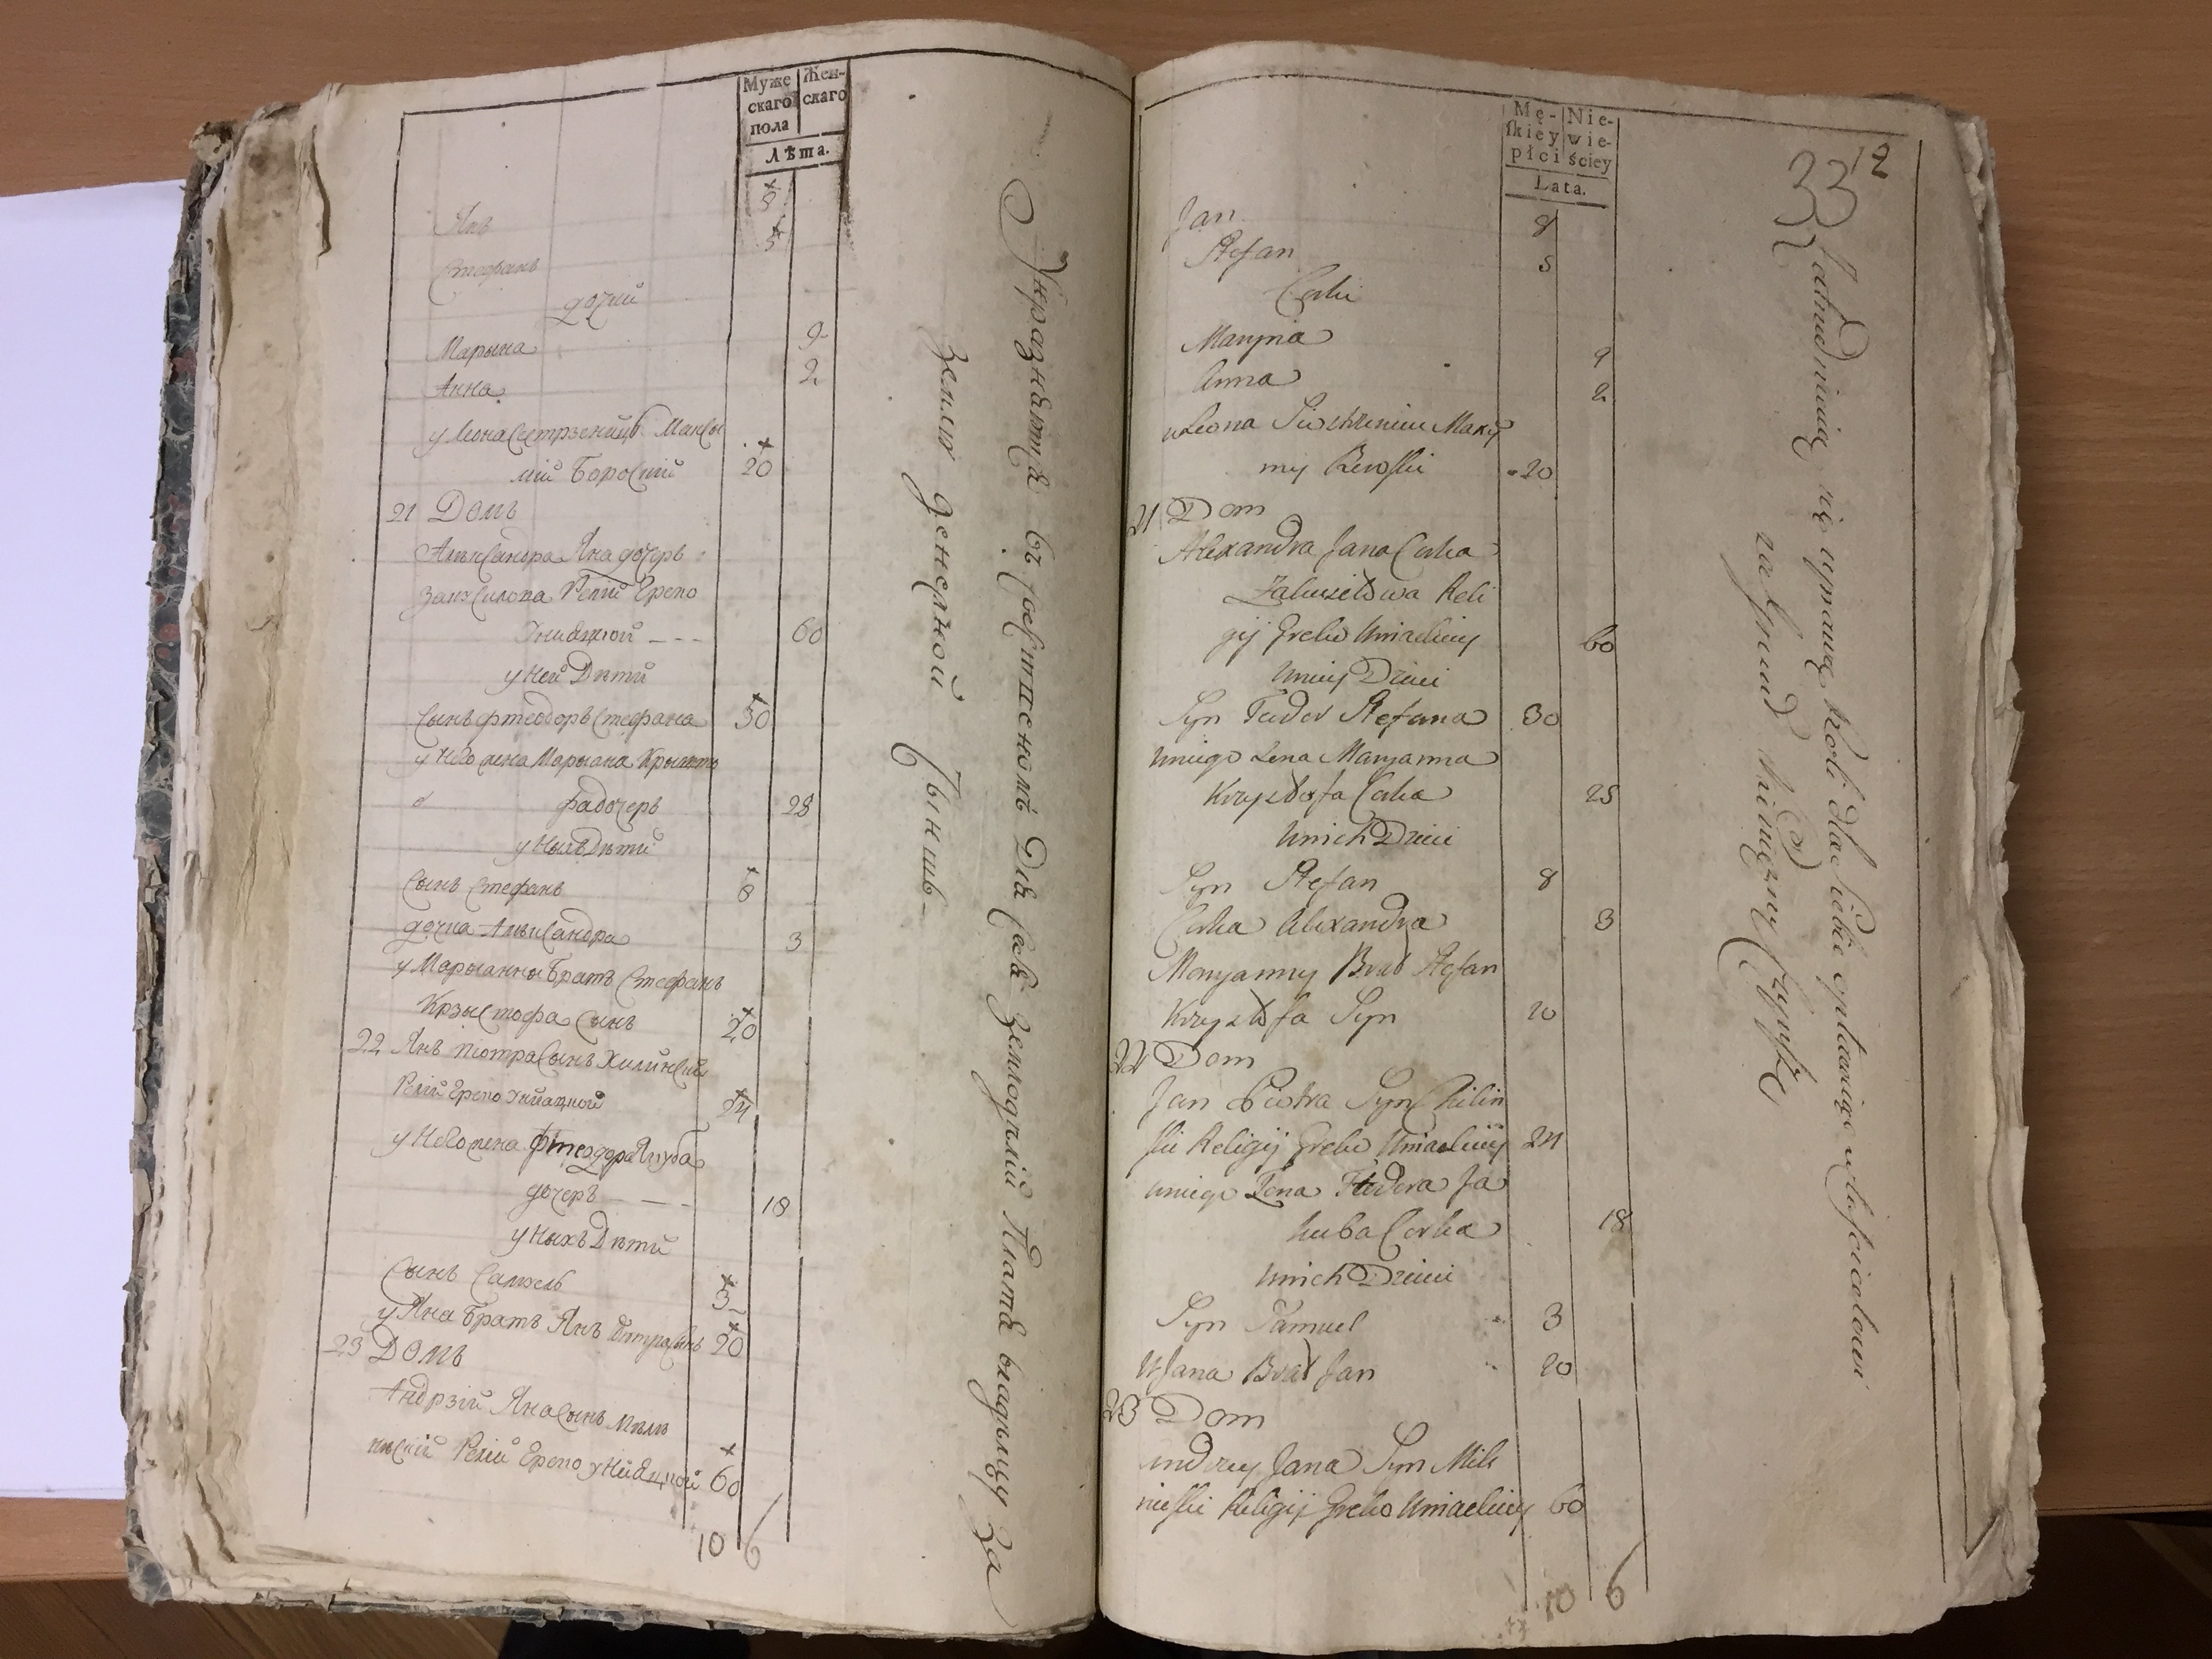 Муже
скаго
пола
Жен-
скаго
Лѣта.
Янъ 8
Стефанъ 5
дочки
Марыана 9
Анна 2
у Леона Сестрзенецъ Максы
мій 20
21 Домъ
Александра Яна дочерь
Релии Греко
60
у Ней Дѣти
Сынъ Фтеодоръ Стефана 30
у Него жена Марыана Крышто
фа дочерь 28
у Ныхъ Дѣти
Сынъ Стефанъ 8
дочка Александра 3
у Марыанны Братъ Стефанъ
Крзыстофа Сынъ 20
22 Янъ Піотра Сынъ Хилинскій
Релии Греко Унiацкой 24
у Него жена Фтеодора Якуба
дочерь 18
у Ныхъ Дѣти
Сынъ Самуель 3
у Яна Братъ Янъ Піотра Сынъ 20
23 Домъ
Андрзій Яна Сынъ Мѣль
Релии Греко Унiацкой 60
10 6
Упразнятся въ хозяйственомъ Для себя земледѣлiи Платя владѣльцу за
землю денежной Чыншъ
33 12
Mę-
skiey
płci
Nie-
wie-
ściey
Lata.
Jan 8
Stefan 5
Corki
Maryna 9
Anna 2
u Leona Siestrzeniec Maxy
mij 20
21 Dom
Alexandra Jana Corka
Reli
gij Greko Uniackiey 60
u niey Dzieci
Syn Teodor Stefana 30
u niego Zona Maryanna
Krzysztofa Corka 25
u nich Dzieci
Syn Stefan 8
Corka Alexandra 3
Maryanny Brat Stefan
Krzysztofa Syn 20
22 Dom
Jan Piotra Syn Chilin
ski Religij Greko Uniackiey 24
u niego Zona Teodora Ja
kuba Corka 18
u nich Dzieci
Syn Samuel 3
u Jana Brat Jan 20
23 Dom
Andrzey Jana Syn Milk
niewski Religij Greko Uniackiey 60
10 6
Zatrudniaią się uprawą Roli dla siebie opłacaiąc właścicielowi
za Grunt Pieniężny Czynsz